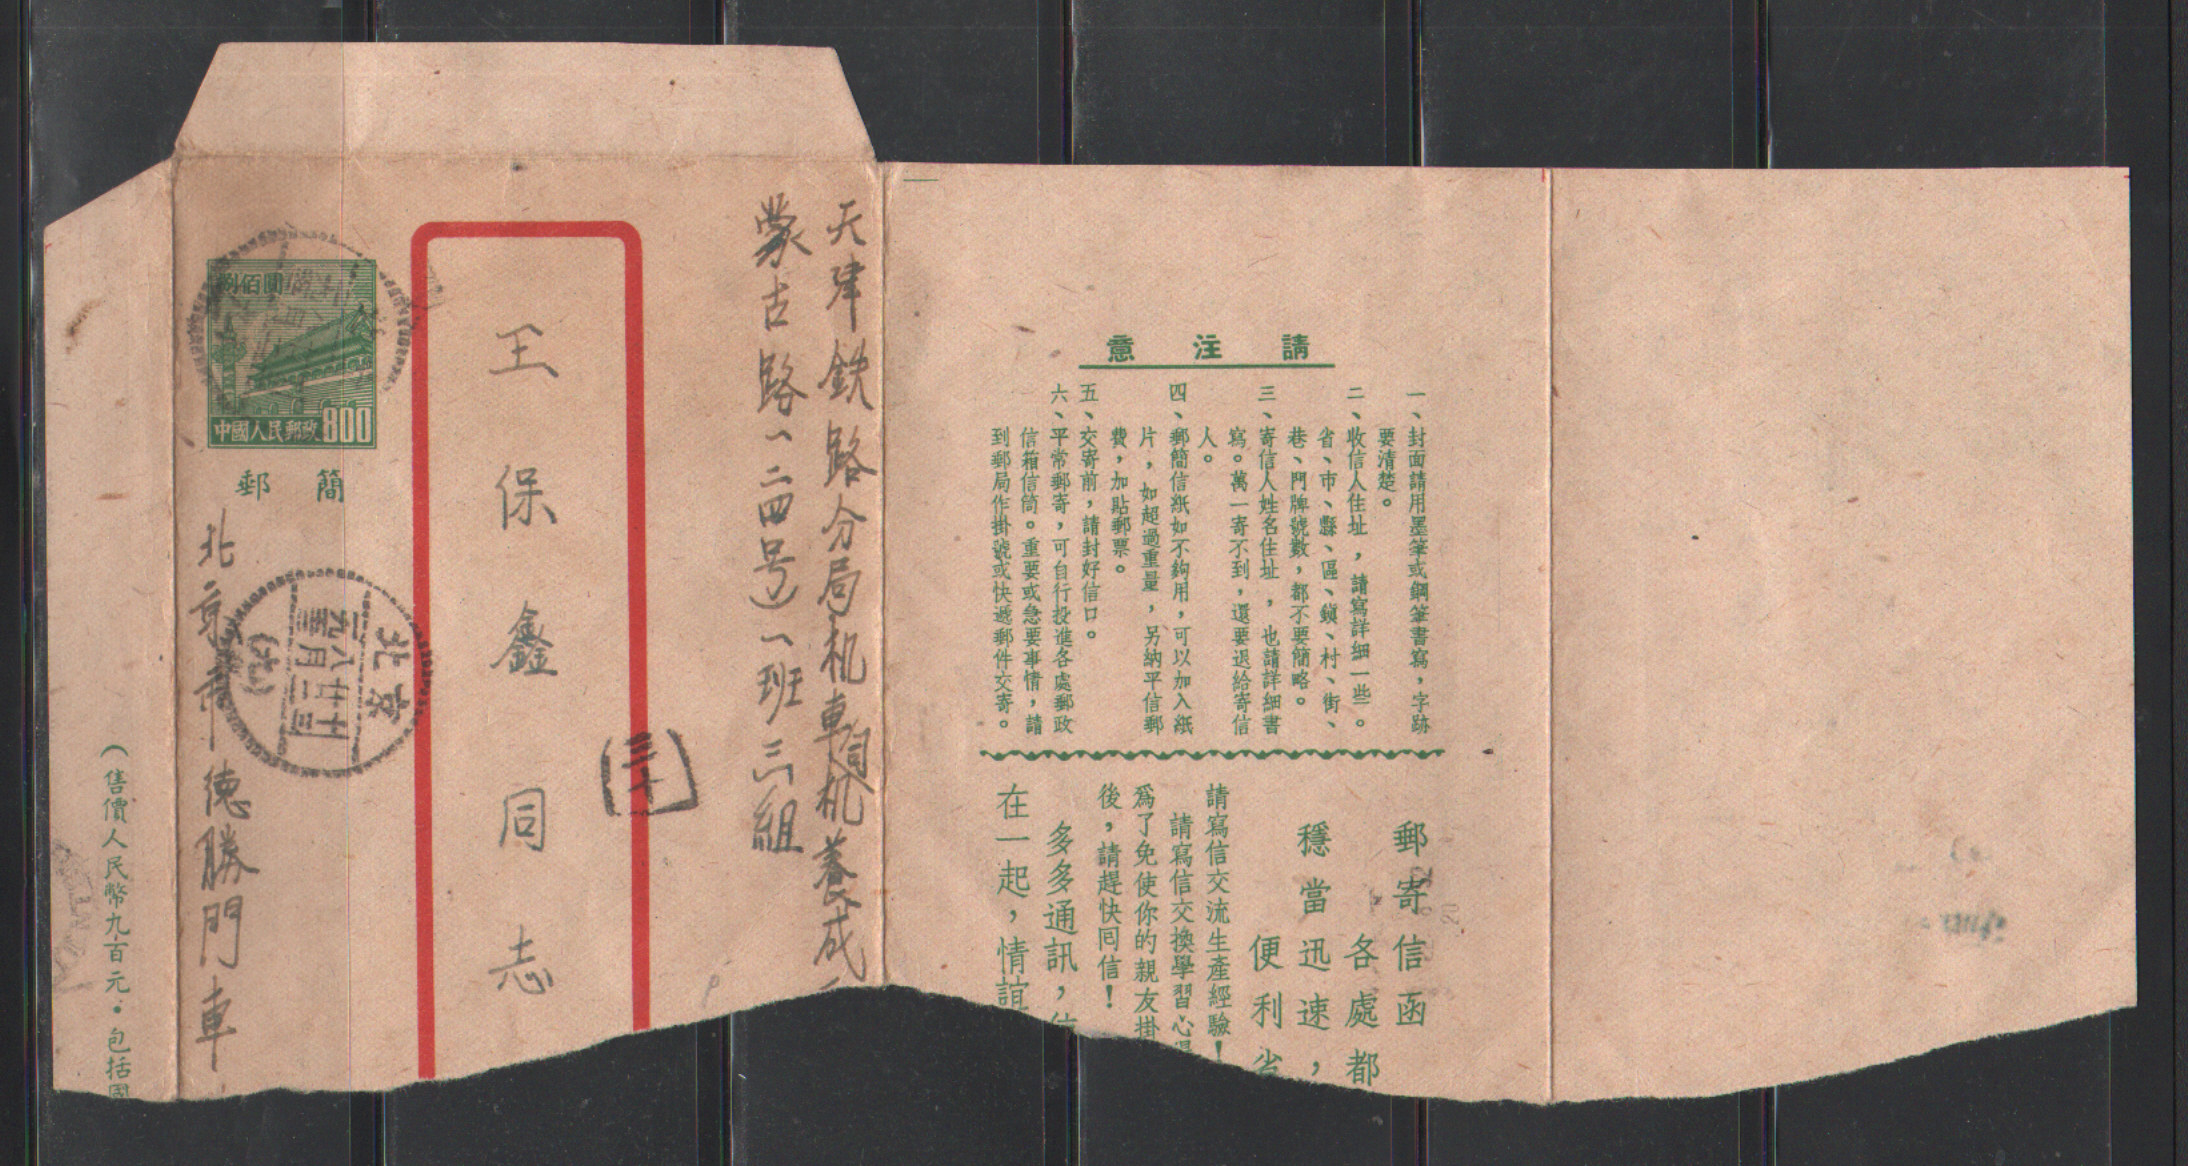 捌佰圓
中國人民郵政800
郵簡
天津鉄路分局机車司机養成
蒙古路(一二四号)一班三組
王保鑫同志
北京市德勝門車
北京
(三十)
(售價人民幣九百元·包括國
請注意
一、封面請用墨筆或鋼筆書寫，字跡
要清楚。
二、收信人住址，請寫詳細一些。
省、市、縣、區、鎭、村、街、
巷、門牌號數，都不要簡略。
三、寄信人姓名住址，也請詳細書
寫。萬一寄不到，還要退給寄信
人。
四、郵簡信紙如不夠用，可以加入紙
片，如超過重量，另納平信郵
費，加貼郵票。
五、交寄前，請封好信口。
六、平常郵寄，可自行投進各處郵政
信箱信筒。重要或急要事情，請
到郵局作掛號或快遞郵件交寄。
郵寄信函
各處都
穩當迅速，
便利省
請寫信交流生產經驗！
請寫信交換學習心得
爲了免使你的親友掛
後，請趕快囘信！
多多通訊，
在一起，情誼